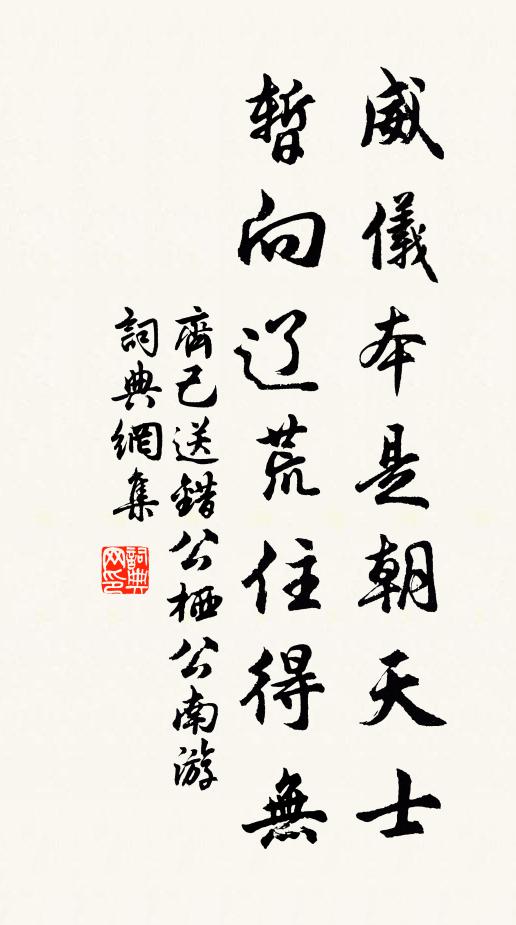 威儀本是朝天士
暫向辽荒住得無
齊己送錯公栖公南游
詞典網集
詞典网印